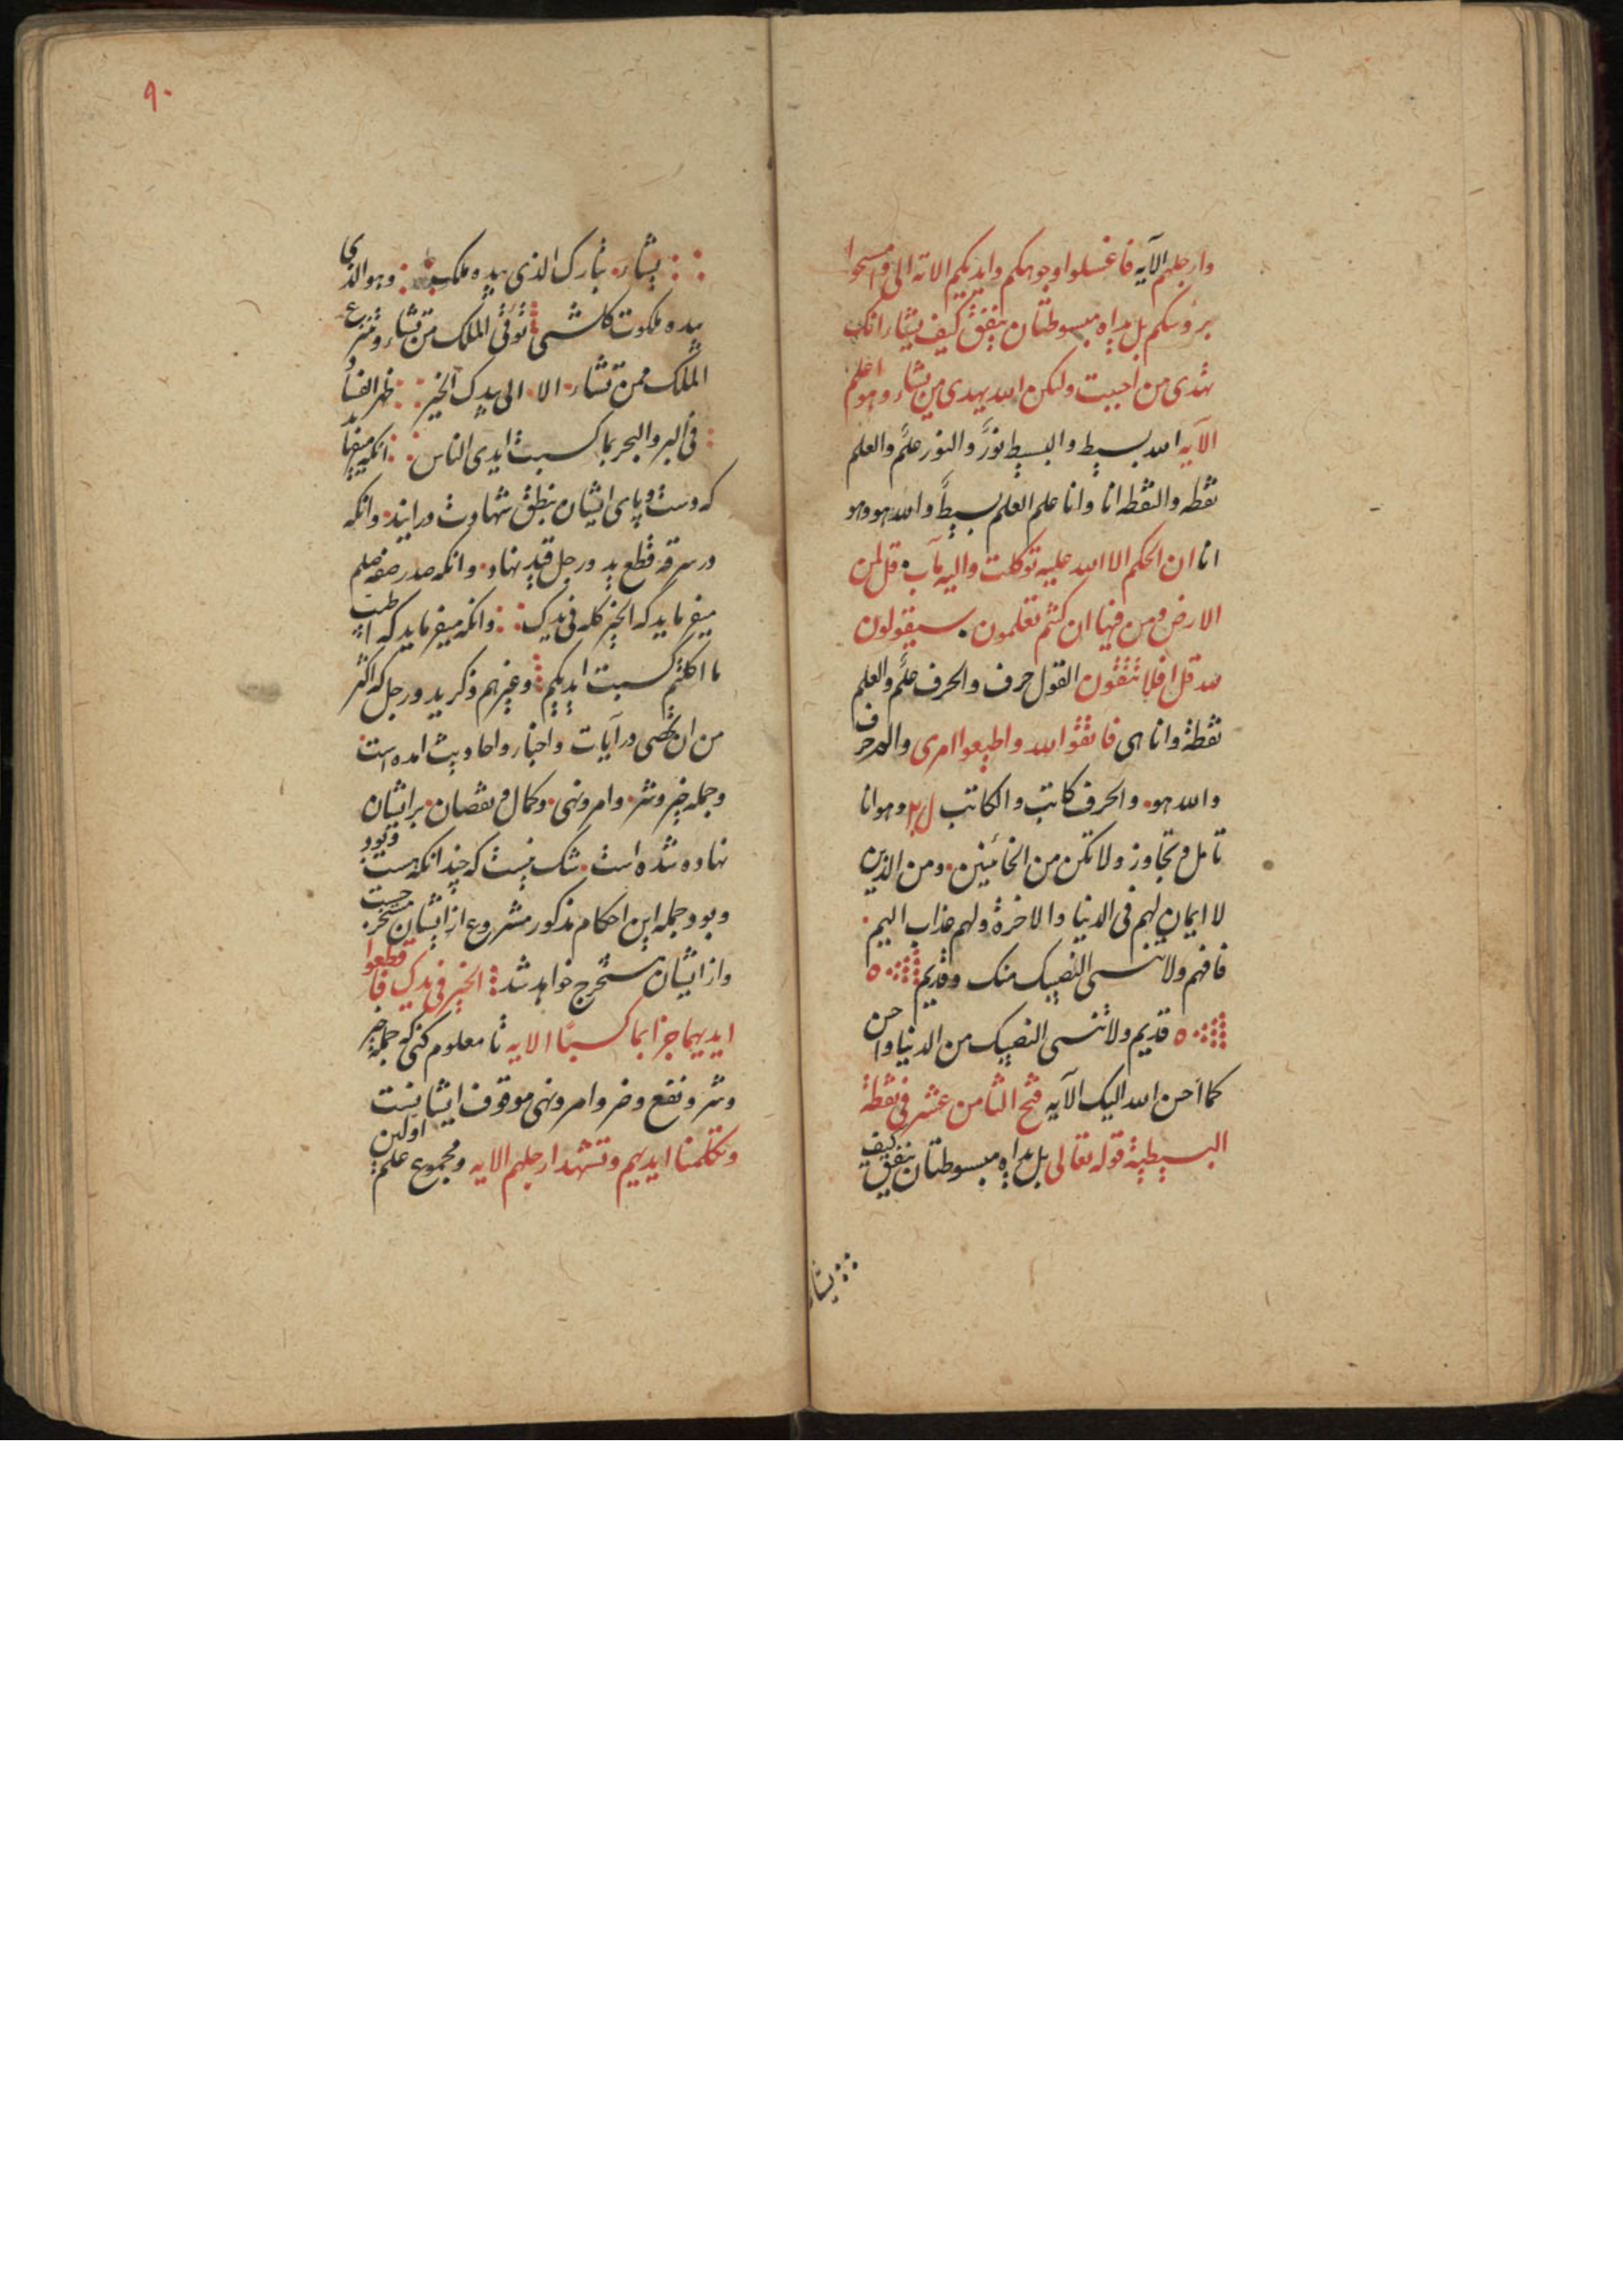 وارجلهم الآیه فاغسلوا وجوهکم وایدیکم الایه الی وامسحوا
بروسکم بل یداه مبسوطتان ینفق کیف یشاء انک
تهدی من احببت ولکن الله یهدی من یشاء وهو اعلم
الآیه الله بسیط والبسیط نور والنور علم والعلم
نقطه والنقطه انا وانا علم العلم بسیط والله هو وهو
انا ان الحکم الا الله علیه توکلت والیه مآب قل لمن
الارض ومن فیها ان کنتم تعلمون سیقولون
لله قل افلا تتقون القول حرف والحرف علم والعلم
نقطة وانا هی فاتقوا الله واطیعوا امری والله حرف
والله هو والحرف کاتب والکاتب وهو انا
تامل و تجاوز ولا تکن من الخائنین ومن الذین
لا ایمان لهم فی الدنیا والاخرة ولهم عذاب الیم
فافهم ولا تنسی النصیبک منک وقدیم ٥
٥ قدیم ولا تنسی النصیبک من الدنیا واحسن
کما احسن الله الیک الآیه فتح الثامن عشر فی نقطة
البسیطیة قوله تعالی بل یداه مبسوطتان ینفق کیف
یشاء
٩٠
یشاء تبارک الذی بیده ملک وهو الذی
بیده ملکوت کلشی توتی الملک من تشاء وتنزع
الملک ممن تشاء الا الی بیدک الخیر ظهر الفساد
فی البر والبحر بما کسبت ایدی الناس انکه میفرماید
که دست و پای ایشان بنطق شهادت درایند وانکه
در سرقه قطع ید و رجل قید نهاد وانکه صدر صفه صلم
میفرماید که الخیر کله فی یدیک وانکه میفرماید که اطیب
ما اکلتم کسبت ایدیکم وغیرهم ذکر ید ورجل که اکثر
من ان یحصی در آیات واخبار واحادیث امده است
وجمله خیر وشر وامر ونهی وکمال و نقصان بر ایشان
نهاده شده است شک نیست که چندانکه هست وبود
وبود جمله این احکام مذکور مشروع از ایشان مستخرجست
واز ایشان مستخرج خواهد شد الخیر فی یدیک فاقطعوا
ایدیهما جزا بما کسبا الایه تا معلوم کنی که جمله خیر
وشر ونفع وضر وامر ونهی موقوف ایشانست
وتکلمنا ایدیهم وتشهد ارجلهم الایه ومجموع علم اولین